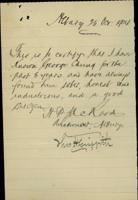 Albury 26 Oct 1904
This is to certify that I have
known George Ewing for the
past 6 years and have always
found him sober, honest and
industrious, and a good
citizen
Albury